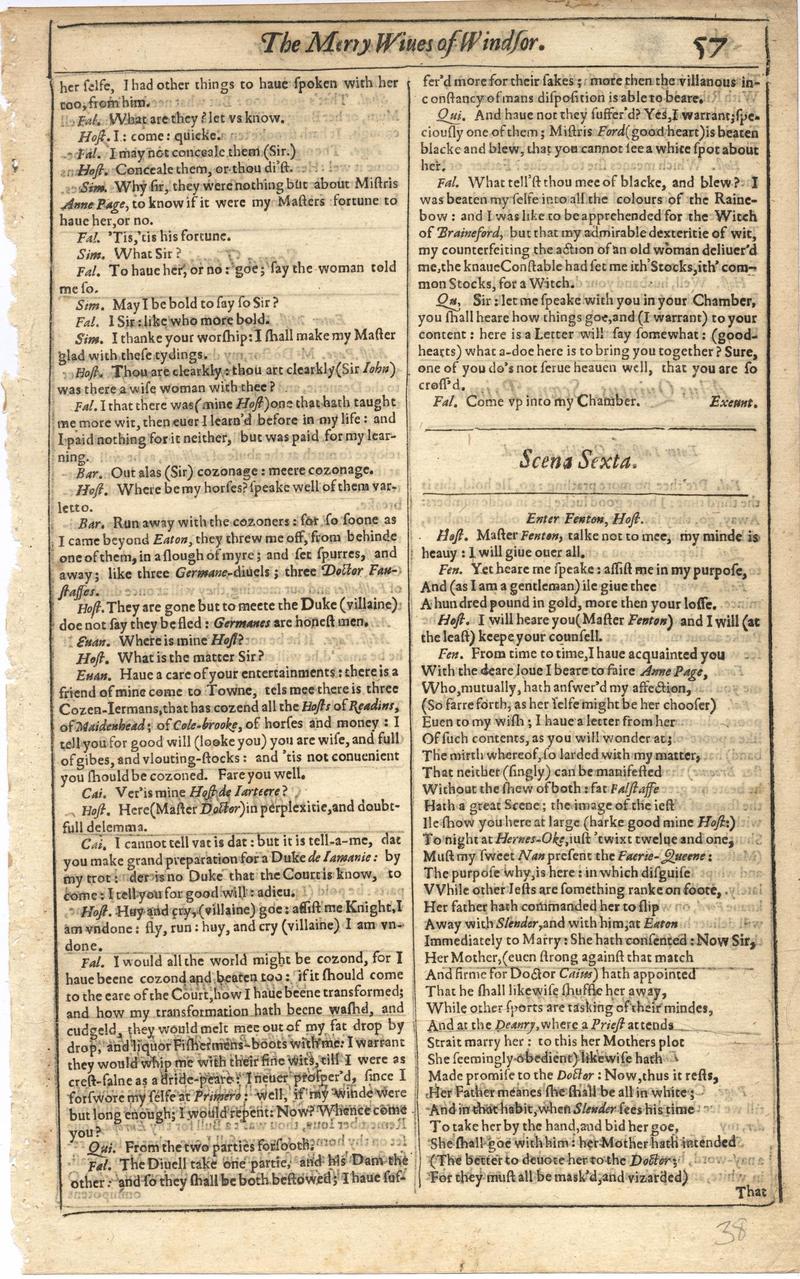 The Merry Wiues of Windsor. 57
her selfe, I had other things to haue spoken with her
too, from him.
Fal. What are they? let vs know.
Host. I: come: quicke.
Fal. I may not conceale them (Sir.)
Host. Conceale them, or thou di'st.
Sim. Why sir, they were nothing but about Mistris
Anne Page, to know if it were my Masters fortune to
haue her, or no.
Fal. 'Tis, 'tis his fortune.
Sim. What Sir?
Fal. To haue her, or no: goe; say the woman told
me so.
Sim. May I be bold to say so Sir?
Fal. I Sir: like who more bold.
Sim. I thanke your worship: I shall make my Master
glad with these tydings.
Host. Thou are clearkly: thou art clearkly (Sir Iohn)
was there a wise woman with thee?
Fal. I that there was (mine Host) one that hath taught
me more wit, then euer I learn'd before in my life: and
I paid nothing for it neither, but was paid for my lear-
ning.
Bar. Out alas (Sir) cozonage: meere cozonage.
Host. Where be my horses? speake well of them var-
letto.
Bar. Run away with the cozoners: for so soone as
I came beyond Eaton, they threw me off, from behinde
one of them, in a slough of myre; and set spurres, and
away; like three Germane-diuels; three Doctor Fau-
stasses.
Host. They are gone but to meete the Duke (villaine)
doe not say they be fled: Germanes are honest men.
Euan. Where is mine Host?
Host. What is the matter Sir?
Euan. Haue a care of your entertainments: there is a
friend of mine come to Towne, tels mee there is three
Cozen-Iermans, that has cozend all the Hosts of Readins,
of Maidenhead; of Cole-brooke, of horses and money: I
tell you for good will (looke you) you are wise, and full
of gibes, and vlouting-stocks: and 'tis not conuenient
you should be cozoned. Fare you well.
Cai. Ver' is mine Host de Iarteere?
Host. Here (Master Doctor) in perplexitie, and doubt-
full delemma.
Cai. I cannot tell vat is dat: but it is tell-a-me, dat
you make grand preparation for a Duke de Iamanie: by
my trot: der is no Duke that the Court is know, to
come: I tell you for good will: adieu.
Host. Huy and cry, (villaine) goe: assist me Knight, I
am vndone: fly, run: huy, and cry (villaine) I am vn-
done.
Fal. I would all the world might be cozond, for I
haue beene cozond and beaten too: if it should come
to the eare of the Court, how I haue beene transformed;
and how my transformation hath beene washd, and
cudgeld, they would melt mee out of my fat drop by
drop, and liquor Fishermens-boots with me: I warrant
they would whip me with their fine wits, till I were as
crest-falne as a dride-peare: I neuer prosper'd, since I
forswore my selfe at Primero: well, if my winde were
but long enough; I would repent: Now? Whence come
you?
Qui. From the two parties forsooth.
Fal. The Diuell take one partie, and his Dam the
other: and so they shall be both bestowed; I haue suf-
fer'd more for their sakes; more then the villanous in-
constancy of mans disposition is able to beare.
Qui. And haue not they suffer'd? Yes, I warrant; spe-
ciously one of them; Mistris Ford (good heart) is beaten
blacke and blew, that you cannot see a white spot about
her.
Fal. What tell'st thou mee of blacke, and blew? I
was beaten my selfe into all the colours of the Raine-
bow: and I was like to be apprehended for the Witch
of Braineford, but that my admirable dexteritie of wit,
my counterfeiting the action of an old woman deliuer'd
me, the knaue Constable had set me ith'Stocks, ith' com-
mon Stocks, for a Witch.
Qu, Sir: let me speake with you in your Chamber,
you shall heare how things goe, and (I warrant) to your
content: here is a Letter will say somewhat: (good-
hearts) what a-doe here is to bring you together? Sure,
one of you do's not serue heauen well, that you are so
cross'd.
Fal. Come vp into my Chamber. Exeunt.
Scena Sexta.
Enter Fenton, Host.
Host. Master Fenton, talke not to mee, my minde is
heauy: I will giue ouer all.
Fen. Yet heare me speake: assist me in my purpose,
And (as I am a gentleman) ile giue thee
A hundred pound in gold, more then your losse.
Host. I will heare you (Master Fenton) and I will (at
the least) keepe your counsell.
Fen. From time to time, I haue acquainted you
With the deare loue I beare to faire Anne Page,
Who, mutually, hath answer'd my affection,
(So farre forth, as her selfe might be her chooser)
Euen to my wish; I haue a letter from her
Of such contents, as you will wonder at;
The mirth whereof, so larded with my matter,
That neither (singly) can be manifested
Without the shew of both: fat Falstaffe
Hath a great Scene; the image of the iest
Ile show you here at large (harke good mine Host:)
To night at Hernes-Oke, iust 'twixt twelue and one,
Must my sweet Nan present the Faerie-Queene:
The purpose why, is here: in which disguise
VVhile other Iests are something ranke on foote,
Her father hath commanded her to slip
Away with Slender, and with him, at Eaton
Immediately to Marry: She hath consented: Now Sir,
Her Mother, (euen strong against that match
And firme for Doctor Caius) hath appointed
That he shall likewise shuffle her away,
While other sports are tasking of their mindes,
And at the Deanry, where a Priest attends
Strait marry her: to this her Mothers plot
She seemingly obedient) likewise hath
Made promise to the Doctor: Now, thus it rests,
Her Father meanes she shall be all in white;
And in that habit, when Slender sees his time
To take her by the hand, and bid her goe,
She shall goe with him: her Mother hath intended
(The better to deuote her to the Doctor;
For they must all be mask'd, and vizarded)
That
38